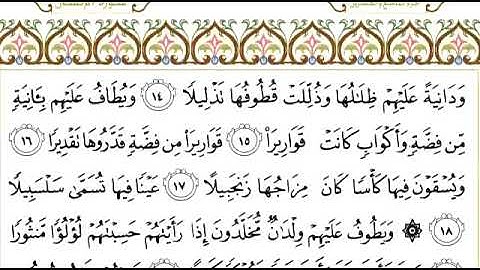 وَدَانِيَةً عَلَيْهِمْ ظِلَٰلُهَا وَذُلِّلَتْ قُطُوفُهَا تَذْلِيلًا ١٤ وَيُطَافُ عَلَيْهِم بِـَٔانِيَةٍ
مِّن فِضَّةٍ وَأَكْوَابٍ كَانَتْ قَوَارِيرَا۠ ١٥ قَوَارِيرَا۟ مِن فِضَّةٍ قَدَّرُوهَا تَقْدِيرًا ١٦
وَيُسْقَوْنَ فِيهَا كَأْسًا كَانَ مِزَاجُهَا زَنجَبِيلًا ١٧ عَيْنًا فِيهَا تُسَمَّىٰ سَلْسَبِيلًا
١٨ ۞ وَيَطُوفُ عَلَيْهِمْ وِلْدَٰنٌ مُّخَلَّدُونَ إِذَا رَأَيْتَهُمْ حَسِبْتَهُمْ لُؤْلُؤًا مَّنثُورًا